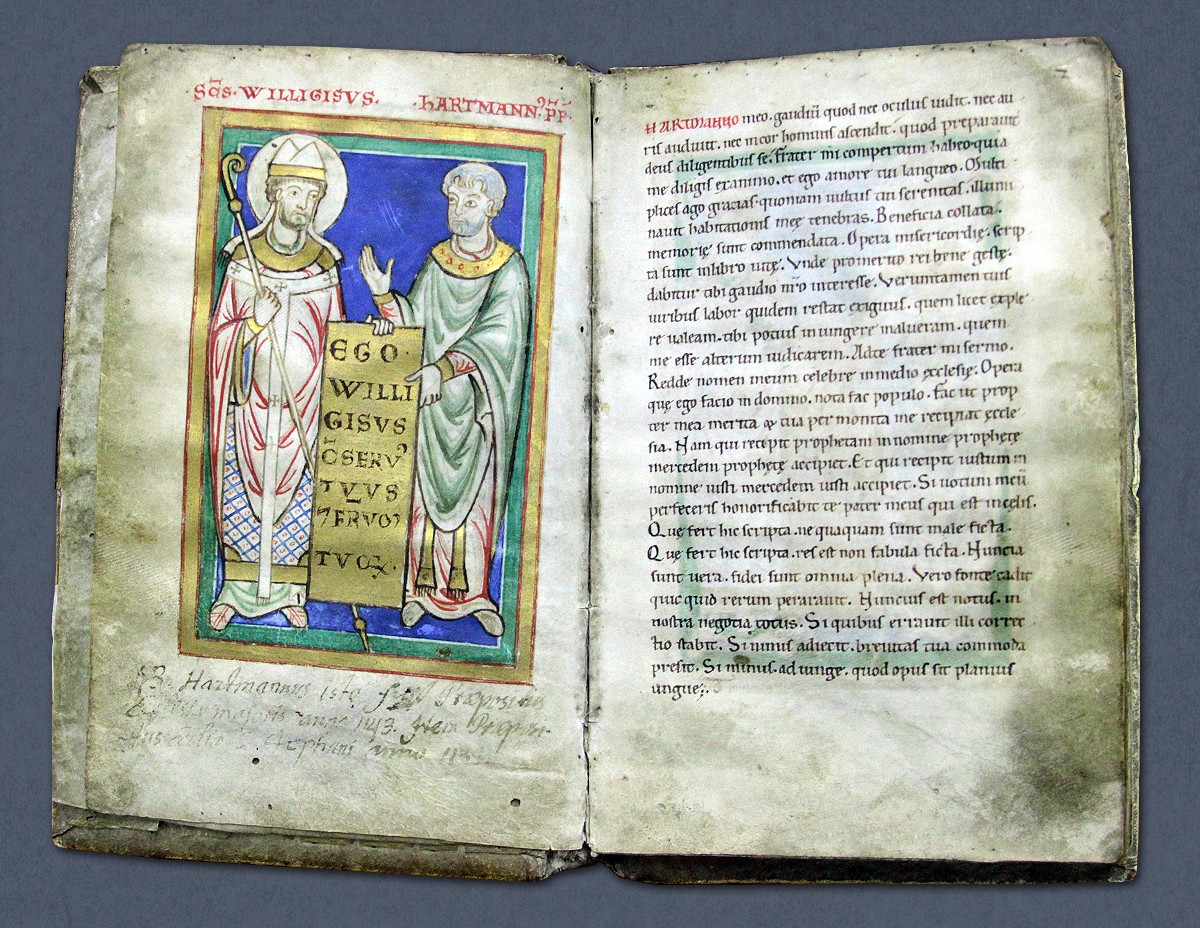 S̄c̄s · WILLIGISVS ·
· HARTMANN⁹ · P̄P̄ ·
EGO ·
WILLI
GISVS
TVVS
TVOR ·
Hartmannus iste
majoris anno 1143. Item
anno 113
HARTMANNO meo. gaudiū quod nec oculus uidit. nec au
ris audiuit. nec in cor hominis ascendit. quod preparauit
deus diligentibus se. frater mi compertum habeo. quia
me diligis ex animo. et ego amore tui langueo. Multi
plices ago gracias. quoniam uultus tui serenitas. illumi
nauit habitationis meę tenebras. Beneficia collata.
memorię sunt commendata. Opera misericordię. scrip
ta sunt in libro uitę. Vnde pro merito rei bene gestę.
dabitur tibi gaudio nr̄o interesse. Veruntamen tuis
uiribus labor quidem restat exiguus. quem licet exple
re ualeam. tibi pocius iniungere malueram. quem
me esse alterum iudicarem. Ad te frater mi sermo.
Redde nomen meum celebre in medio ęcclesię. Opera
quę ego facio in domino. nota fac populo. fac ut prop
ter mea merita & tua per monita me recipiat ęccle
sia. Nam qui recepit prophetam in nomine prophetę
mercedem prophetę accipiet. Et qui recipit iustum in
nomine iusti mercedem iusti accipiet. Si uotum meū
perfeceris honorificabit te pater meus qui est in cęlis.
Quę fert hic scripta. ne quaquam sunt male ficta.
Quę fert hic scripta. res est non fabula ficta. Huncia
sunt uera. fidei sunt omnia plena. Vero fonte cadit
quic quid rerum perarauit. Huncius est notus. in
nostra negotia totus. Si quibus errauit illi correc
tio stabit. Si nimis adiecit. breuitas tua commoda
presit. Si minus. ad iunge. quod opus sit planius
ungue.